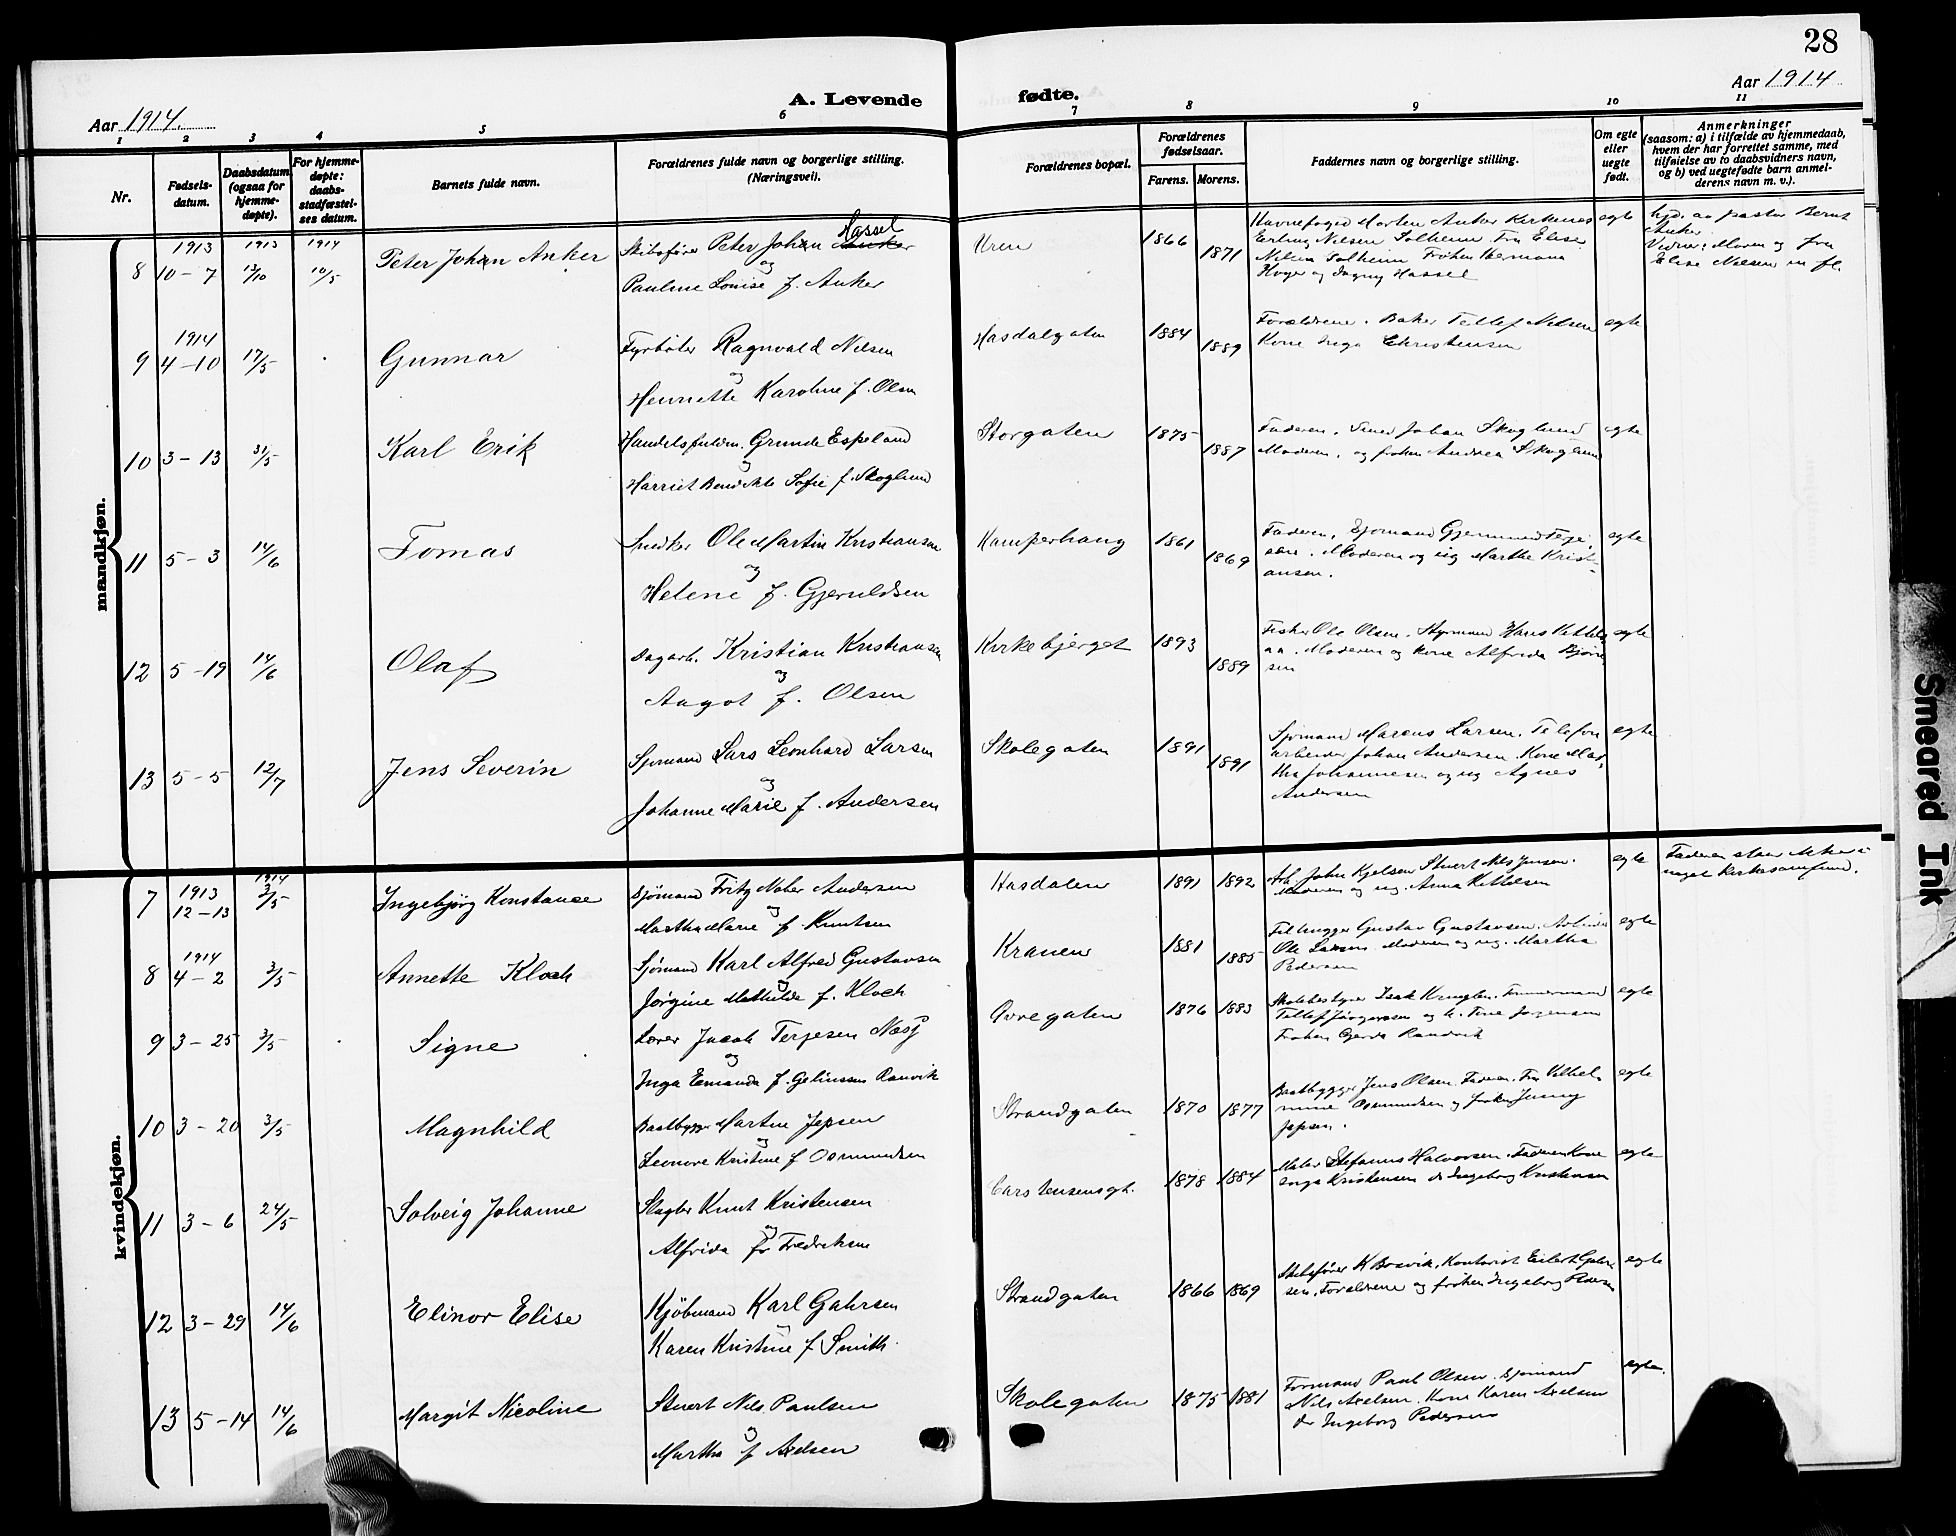 28
Aar 1914.
A. Levende
fødte.
Aar 1914
1 2 3 4 5 6 7 8 9 10 11
Nr.
Fødsels-
datum.
Daabsdatum
(ogsaa for
hjemme-
døpte).
For hjemme-
døpte:
daabs-
stadfæstel-
ses datum.
Barnets fulde navn.
Forældrenes fulde navn og borgerlige stilling.
(Næringsvei).
Forældrenes bopæl.
Forældrenes
fødselsaar.
Farens. Morens.
Faddernes navn og borgerlige stilling.
Om egte
eller
uegte
født.
Anmerkninger
(saasom: a) i tilfælde av hjemmedaab,
hvem der har forrettet samme, med
tilføielse av to daabsvidners navn,
og b) ved uegtefødte barn anmel-
derens navn m. v.).
mandkjøn.
8 1913 10-7 1913 13/10 1914 10/5 Peter Johan Anker
Skibsfører Peter Johan Anker Hassel
og
Pauline Louise f. Anker
1866 1871
Havnefoged Morten Anker Kirkenes
Erling Nielsen Solheim Fru Elise
Nilsen Solheim Frøken
og Dagny Hassel
egte
hjd. av pastor Bernt
Anker
Vidner: Moren og fru
Elise Nielsen m fl.
9 1914 4-10 17/5 Gunnar
Fyrbøter Ragnvald Nilsen
og
Henriette Karoline f. Olsen
Hasdalgaten 1884 1889
Forældrene. Baker Tellef Nilsen
Kone Inga Christensen
egte
10 3-13 31/5 Karl Erik
Handelsfuldm. Grunde Espeland
og
Harriet Benedikte Sofie f. Skoglund
Storgaten 1875 1887
Faderen. Johan Skoglund
Moderen. og frøken Andrea Skoglund
egte
11 5-3 14/6 Tomas
Snedker Ole Martin Kristiansen
og
Helene f. Gjeruldsen
Kamperhaug 1861 1869
Faderen, Sjømand Gjermund Terje-
sen. Moderen og ug Marthe Kristi-
ansen.
egte
12 5-19 14/6 Olaf
Dagarb. Kristian Kristiansen
og
Aagot f. Olsen
Kirkebjerget 1893 1889
Fisker Ole Olsen. Styrmand Hans Kittels-
aa. Moderen og kone Alfrida Bjørn
sen
egte
13 5-5 12/7 Jens Severin
Sjømand Lars Leonhard Larsen
og
Johanne Marie f. Andersen
Skolegaten 1891 1891
Sjømand Marcus Larsen. Telefon
arbeider Johan Andersen. Kone Mar-
tha Johannesen og ug Agnes
Andersen
egte
kvindekjøn.
7 1913 12-13 1914 3/5 Ingebjørg Konstance
Sjømand Fritz Andersen
og
Martha Marie f. Knutsen
Hasdalen 1891 1892
Arb. John Kjelsen Stuert Nils Jensen.
Moderen og ug. Anna Kittelsen
egte
Faderen staar ikke i
noget kirkesamfund.
8 1914 4-2 3/5 Annette Kloch
Sjømand Karl Alfred Gustavsen
og
Jørgine Mathilde f. Kloch
Kranen 1881 1885
Gustav Gustavsen. Arbeider
Ole Larsen. Moderen og ug. Martha
Pedersen
egte
9 3-25 3/5 Signe
Lærer Jacob Terjesen Næs
og
Inga Emanda f. Ranvik
Øvregaten 1876 1883
Skolebestyrer Isak. Tømmermand
Tellef Jørgensen og k. Tine Jørgensen
Frøken Gerda Randvik
egte
10 3-20 3/5 Magnhild
Baatbygger Martin Jepsen
og
Leonore Kristine f Osmundsen
Strandgaten 1870 1877
Baatbygger Jens Olsen. Faderen. Fru Vilhel-
mine Osmundsen og frøken Jenny
Jepsen.
egte
11 3-6 24/5 Solveig Johanne
Slagter Knut Kristensen
og
Alfrida f. Fredriksen
Carstensensgt. 1878 1884
Maler Stefanus Halvorsen. Faderen Kone
Inga Kristensen do Ingeborg Kristensen
egte
12 3-29 14/6 Elinor Elise
Kjøbmand Karl Gahrsen
og
Karen Kristine f Smith.
Strandgaten 1866 1869
Skibsfører K Bosvik, Kontorist Eilert Gahr-
sen. Forældrene og frøken Ingeborg Pedersen
egte
13 5-14 14/6 Margit Nicoline
Stuert Nils Paulsen
og
Martha f Axelsen
Skolegaten 1875 1881
Formand Paul Olsen. Sjømand
Nils Axelsen. Kone Karen Axelsen
do Ingeborg Pedersen
egte.
Smeared Ink